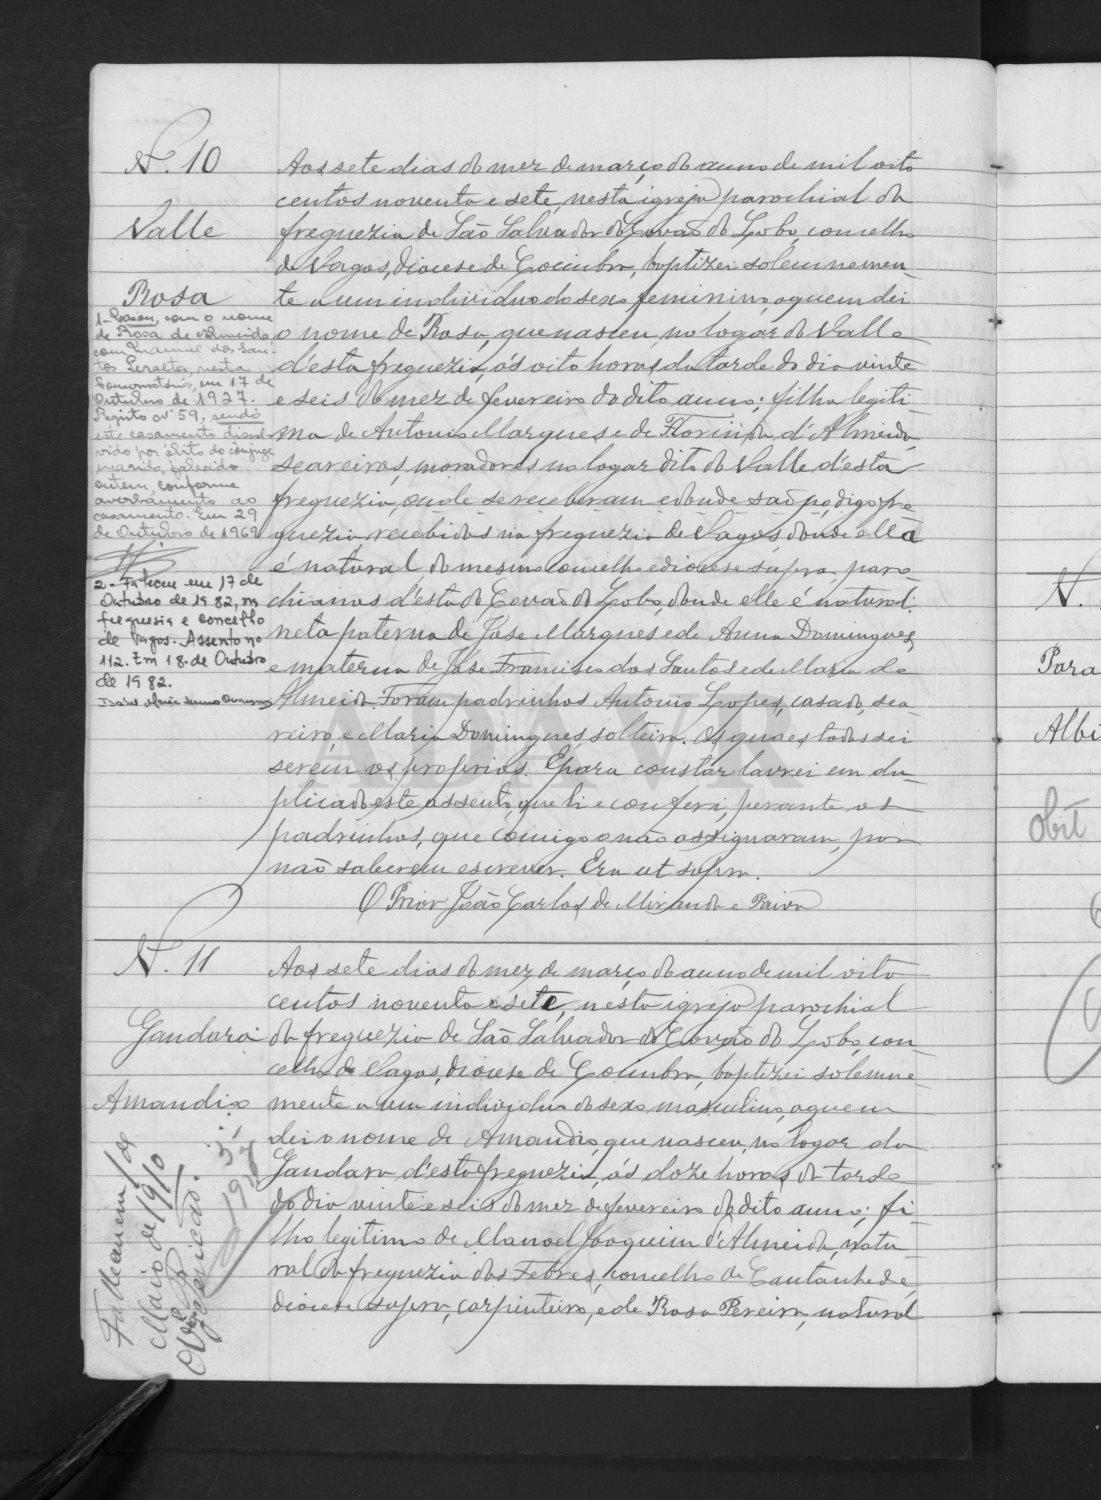 N.º 10
Valle
Rosa
1 - Casou, com o nome
de Rosa de Almeida
com Manuel dos San-
tos Peralta, nesta
Conservatória, em 17 de
Outubro de 1927.
Registo nº 59, sendo
este casamento dissol-
vido por óbito do cônjuge
marido, falecido
ontem, conforme
averbamento ao
casamento. Em 29
de Outubro de 1969
2 - Faleceu em 17 de
Outubro de 1982, na
freguesia e concelho
de Vagos. Assento nº
112. Em 18 de Outubro
de 1982.
Aos sete dias do mez de março do anno de mil oito
centos noventa e sete, nesta igreja parochial da
freguezia de São Salvador do Covão do Lobo, concelho
de Vagos, diocese de Coimbra, baptizei solemnemen-
te a um individuo do sexo feminino, a quem dei
o nome de Rosa, que nasceu, no logar do Valle
d'esta freguezia, ás oito horas da tarde do dia vinte
e seis do mez de fevereiro do dito anno; filha legiti-
ma de Antonio Marques e de Florinda d'Almeida,
seareiros, moradores no logar dito do Valle d'esta
freguezia, onde se receberam e donde são pa, digo, fre-
guezia recebidos na freguezia de Vagos, donde ella
é natural, do mesmo concelho e diocese supra, paro-
chianos d'esta do Covão do Lobo, donde elle é natural;
neta paterna de Jose Marques e de Anna Domingues,
e materna de Jose Francisco dos Santos e de Maria de
Almeida. Foram padrinhos Antonio Lopes, casado, sea-
reiro, e Maria Domingues, solteira. Os quaes todos sei
serem os proprios. E para constar lavrei em du-
plicado este assento, que li e conferi, perante os
padrinhos, que comigo o não assignaram, por
não saberem escrever. Era ut supra.
O Prior João Carlos de Miranda e Paiva
N.º 11
Gandara
Amandio
Falleceu em 1 de
Maio de 1910
Aos sete dias do mez de março do anno de mil oito
centos noventa e sete, nesta igreja parochial
da freguezia de São Salvador do Covão do Lobo, con-
celho de Vagos, diocese de Coimbra, baptizei solemne-
mente a um individuo do sexo masculino, a quem
dei o nome de Amandio, que nasceu, no logar da
Gandara d'esta freguezia, ás doze horas da tarde
do dia vinte e seis do mez de fevereiro do dito anno; fi-
lho legitimo de Manoel Joaquim d'Almeida, natu-
ral da freguezia das Febres, concelho de Cantanhede,
diocese supra, carpinteiro, e de Rosa Pereira, natural
N.
Para
Albi
Obit